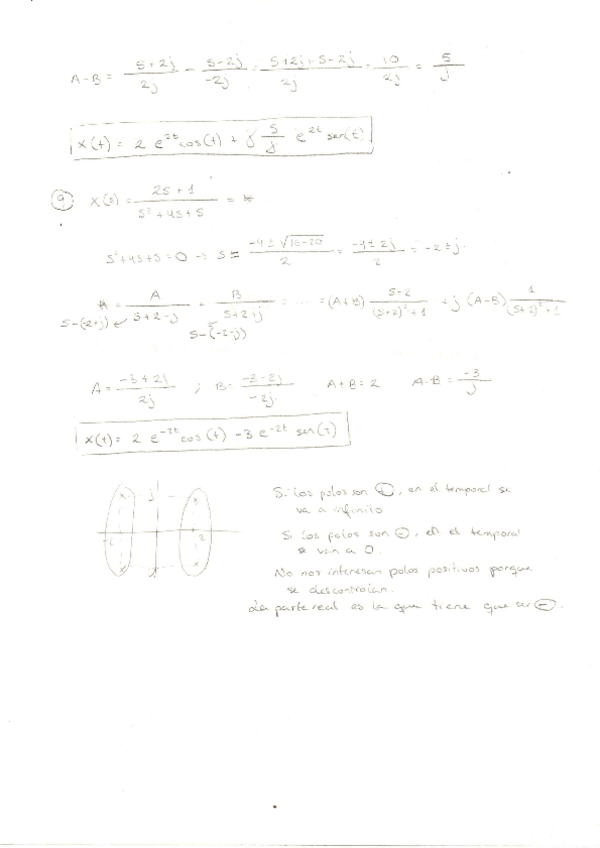 A-B = \frac{5+2j}{2j} - \frac{5-2j}{-2j} = \frac{5+2j+5-2j}{2j} = \frac{10}{2j} = \frac{5}{j}
x(t) = 2 e^{2t} cos(t) + j \frac{5}{j} e^{2t} sen(t)
9 X(s) = \frac{2s+1}{s^2+4s+5} = *
s^2+4s+5=0 → s = \frac{-4±\sqrt{16-20}}{2} = \frac{-4±2j}{2} = -2±j
* = \frac{A}{s+2-j} + \frac{B}{s+2+j} = ..... = (A+B) \frac{s-2}{(s+2)^2+1} + j (A-B) \frac{1}{(s+2)^2+1}
s-(-2+j)
s-(-2-j)
A = \frac{-3+2j}{2j} ; B = \frac{-3-2j}{-2j} A+B = 2 A-B = \frac{-3}{j}
x(t) = 2 e^{-2t} cos(t) - 3 e^{-2t} sen(t)
j
-2 2
Si los polos son +, en el temporal se
va a infinito
Si los polos son -, en el temporal
se van a 0.
No nos interesan polos positivos porque
se descontrolan.
La parte real es la que tiene que ser -.